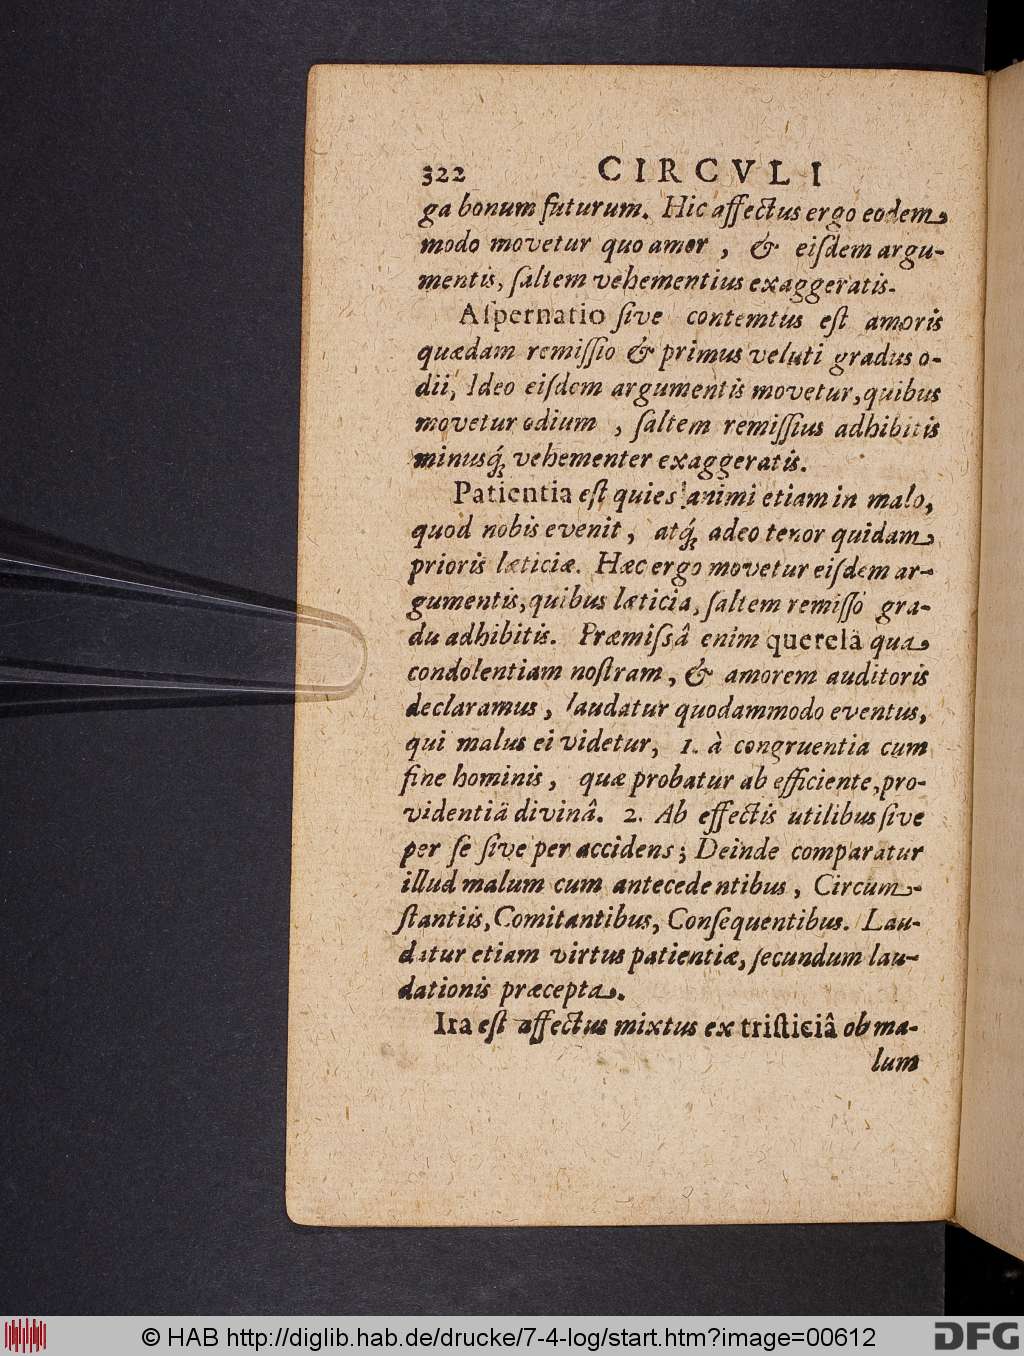 322 CIRCVLI
ga bonum futurum. Hic affectus ergo eodem
modo movetur quo amor, & eiſdem argu-
mentis, ſaltem vehementius exaggeratis.
Aſpernatio ſive contemtus eſt amoris
quædam remiſſio & primus veluti gradus o-
dii, Ideo eiſdem argumentis movetur, quibus
movetur odium, ſaltem remiſſius adhibitis
minusq́; vehementer exaggeratis.
Patientia eſt quies animi etiam in malo,
quod nobis evenit, atq́; adeo tenor quidam
prioris læticiæ. Hæc ergo movetur eiſdem ar-
gumentis, quibus læticia, ſaltem remiſſo gra-
du adhibitis. Præmiſsâ enim querelâ qua
condolentiam noſtram, & amorem auditoris
declaramus, laudatur quodammodo eventus,
qui malus ei videtur, 1. à congruentia cum
fine hominis, quæ probatur ab efficiente, pro-
videntiâ divinâ. 2. Ab effectis utilibus ſive
per ſe ſive per accidens; Deinde comparatur
illud malum cum antecedentibus, Circum-
ſtantiis, Comitantibus, Conſequentibus. Lau-
datur etiam virtus patientiæ, ſecundum lau-
dationis præcepta.
Ira eſt affectus mixtus ex triſticiâ ob ma-
lum
© HAB http://diglib.hab.de/drucke/7-4-log/start.htm?image=00612
DFG